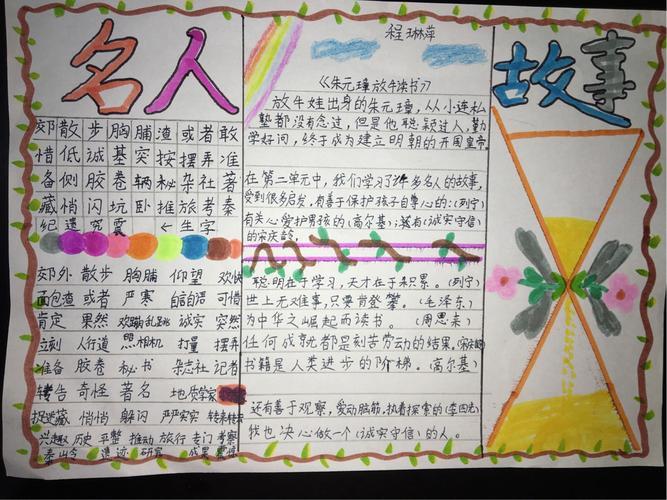 名人
故事
程琳萍
郊散步胸脯渣或者敢
惜低诚基突按摆弄准
备侧胶卷辆秘杂社著
藏悄闪坑卧推旅考秦
纪遗究震←生字
郊外 散步 胸脯 仰望 欢快
面包渣 或者 严寒 自言自语 可惜
肯定 果然 欢蹦乱跳 诚实 突然
立刻 人行道 照相机 打量 摆弄
准备 胶卷 秘书 杂志社 记者
转告 奇怪 著名 地质学家
捉迷藏 悄悄 躲闪 严严实实
兴趣 历史 平整 推动 旅行 专门 考察
秦岭 遗迹 研究 成果
《朱元璋放牛读书》
放牛娃出身的朱元璋，从小连私
塾都没有念过，但是他聪颖过人，勤
学好问，终于成为建立明朝的开国皇帝。
在第二单元中，我们学习了许多名人的故事，
受到很多启发，有善于保护孩子自尊心的：(列宁)
有关心爱护男孩的(高尔基)；
的宋庆龄。
聪明在于学习，天才在于积累。(列宁)
世上无难事，只要肯登攀。(毛泽东)
为中华之崛起而读书。(周恩来)
任何成就都是刻苦劳动的结果。(宋庆龄)
书籍是人类进步的阶梯。(高尔基)
还有善于观察，爱动脑筋，执着探索的(李四光)
我也决心做一个(诚实守信)的人。